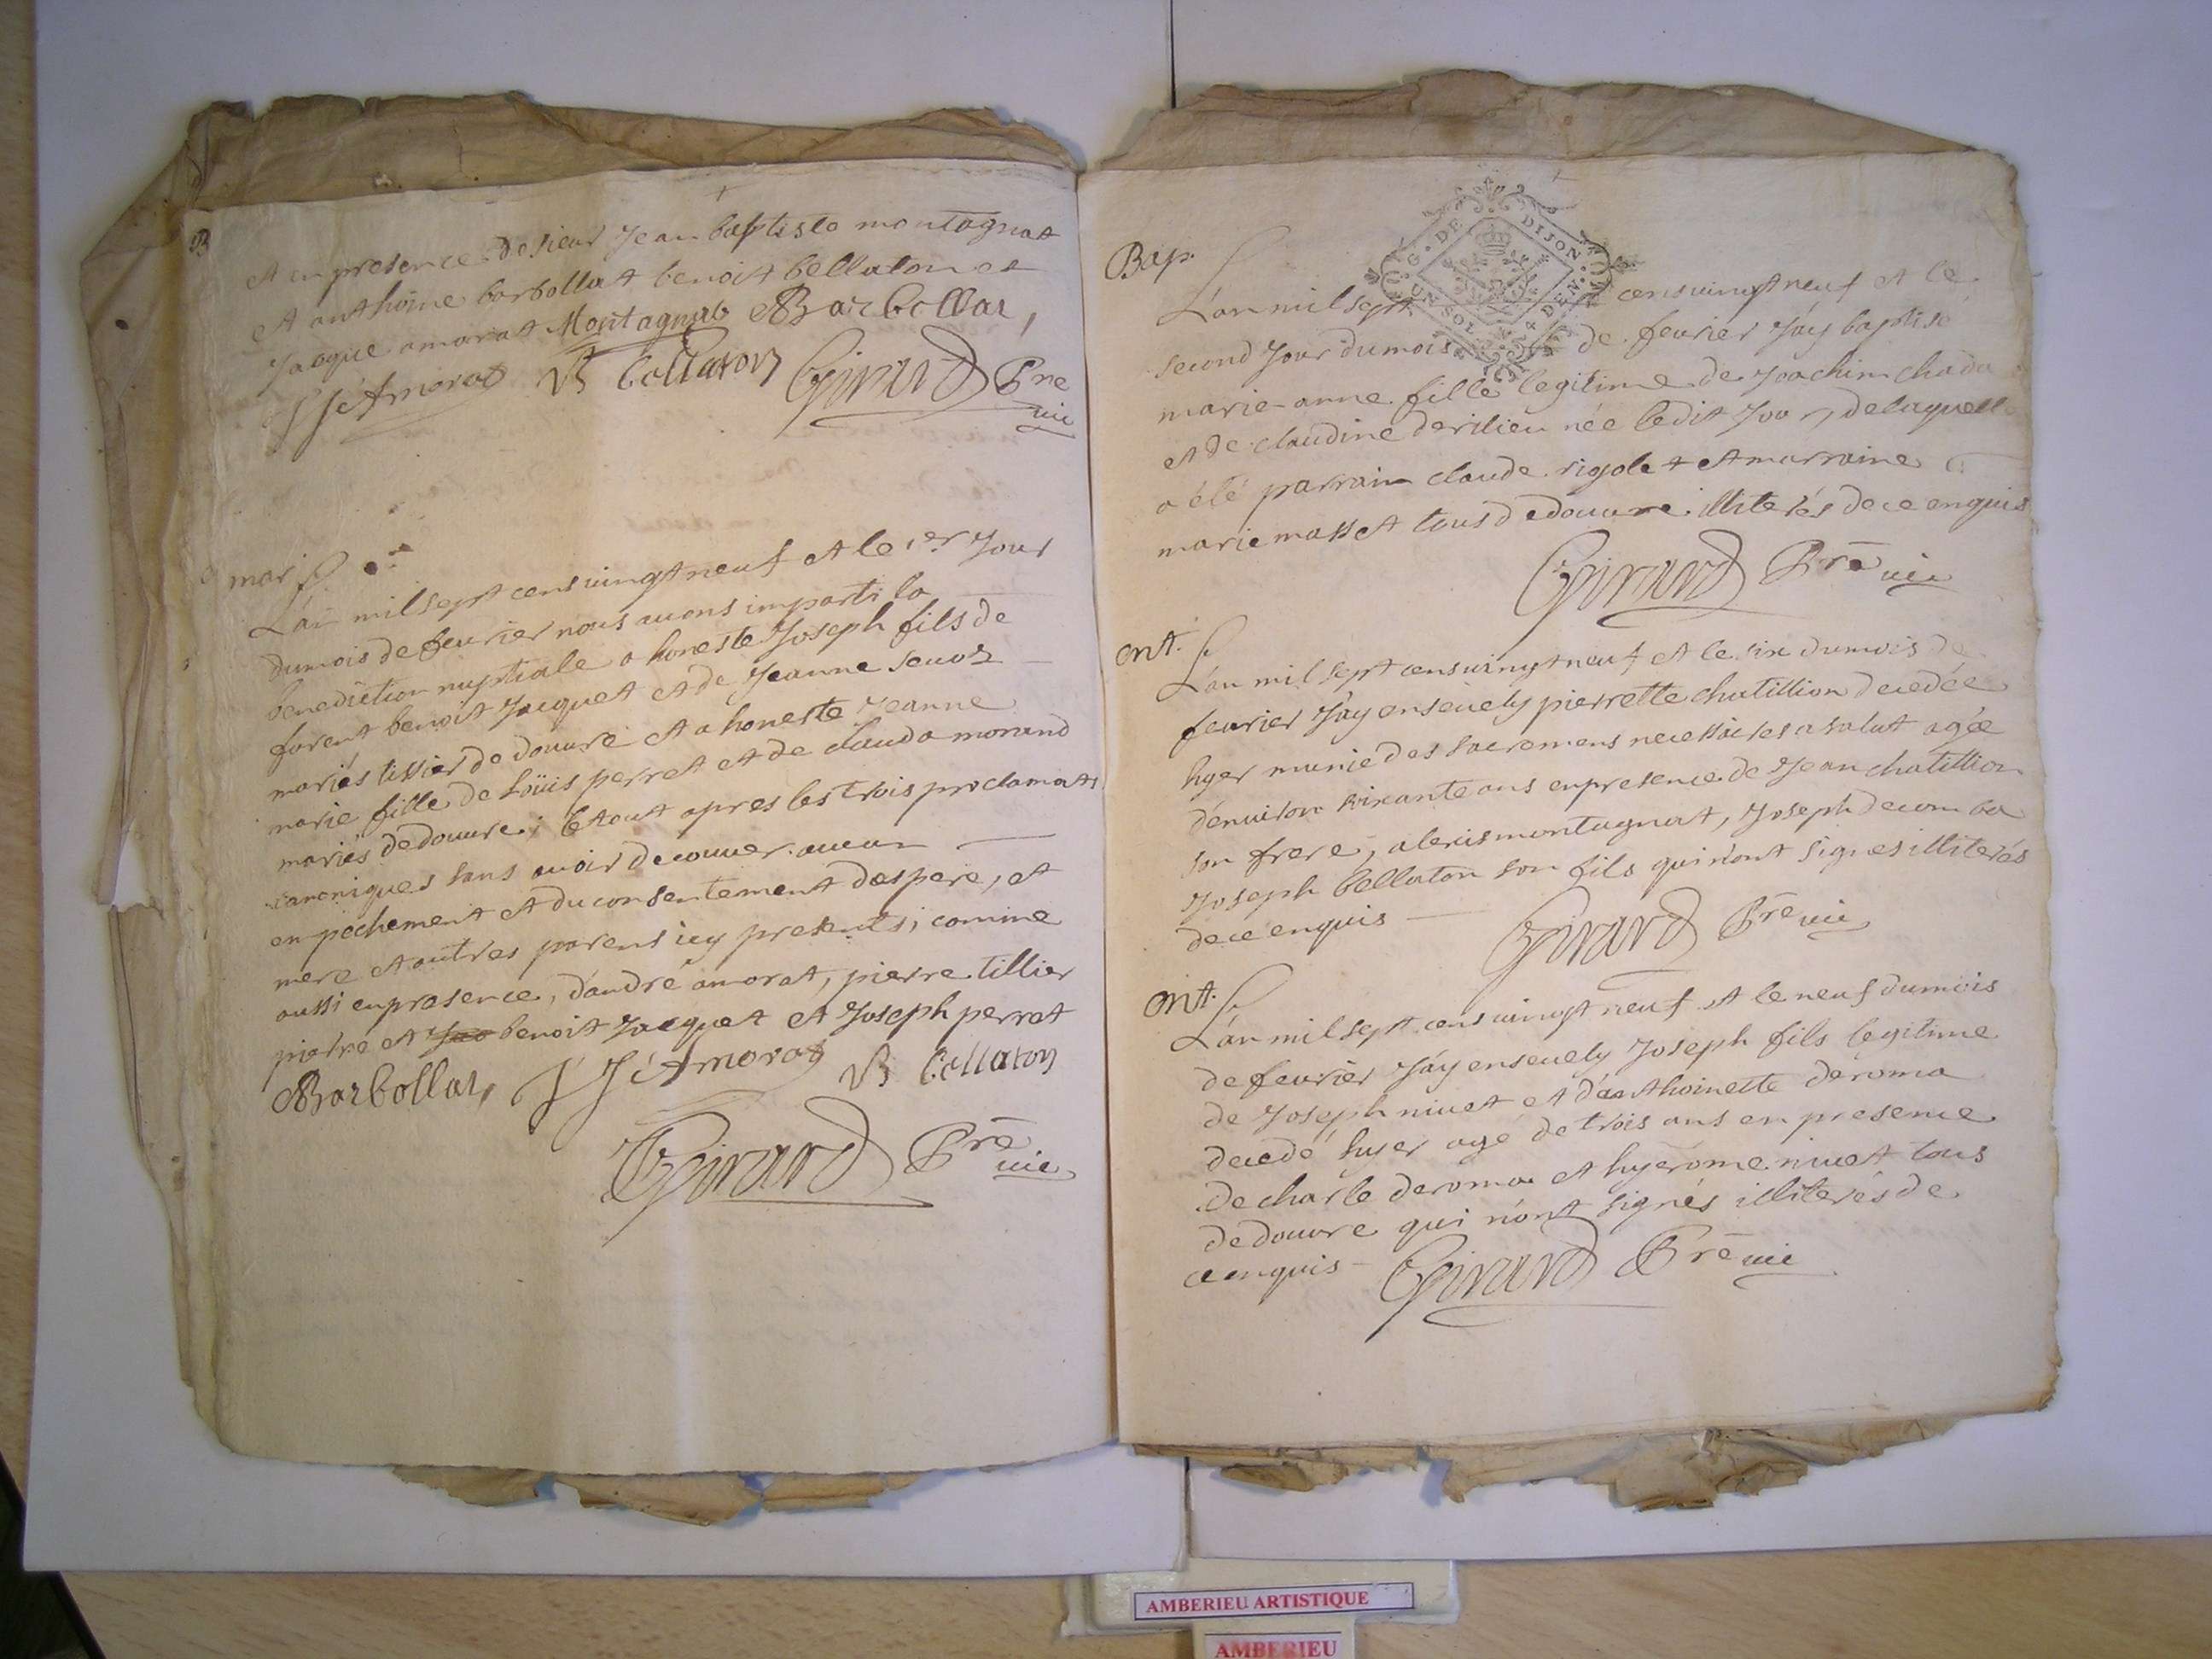 et en presence de sieur Jean baptiste montagnat
et anthoine barbollat benoit bellaton et
Jaque amorat Montagnat Barbollat,
J Amorat B bellaton Girard Pre
vic
mar
L'an mil sept cens vingt neuf et le 1er Jour
du mois de feurier nous auons imparti la
benediction nuptiale a honeste Joseph fils de
forent benoit Jacquet et de Jeanne seuoz
mariés tissier de douure et a honeste Jeanne
marie fille de Loüis perret et de clauda morand
mariés de douure; le tout apres les trois proclamats
canoniques sans auoir decouuer aucun
enpechement et du consentement des pere, et
mere et autres parens icy presents, comme
aussi en presence, d'andré amorat, pierre tillier
pierre et benoit Jacquet et Joseph perret
Barbollat, J Amorat B bellaton
Girard Pre
vic
Bap.
G. DE DIJON
UN SOL 4 DEN.
L'an mil sept cens vingt neuf et le
second Jour du mois de feurier J'ay baptisé
marie anne fille legitime de Joachim chada
et de claudine derilieu née ledit Jour, de laquelle
a été parrain claude rigolet et marraine
marie masset tous de douure illiterés de ce enquis
Girard Pre vic
ent.
L'an mil sept cens vingt neuf et le six du mois de
feurier J'ay enseuely pierrette chatillion decedée
hyer munie des sacremens necessaires a salut agée
d'enuiron soixante ans en presence de Jean chatillion
son frere, alexis montagnat, Joseph decomba
Joseph bellaton son fils qui n'ont signés illiterés
de ce enquis Girard Pre vic
ent.
L'an mil sept cens vingt neuf et le neuf du mois
de feurier J'ay enseuely Joseph fils legitime
de Joseph niuet et d'anthoinette deroma
decedé hyer agé de trois ans en presence
de charle deroma et hyerome niuet tous
de douure qui n'ont signés illiterés de
ce enquis Girard Pre vic
AMBERIEU ARTISTIQUE
AMBERIEU